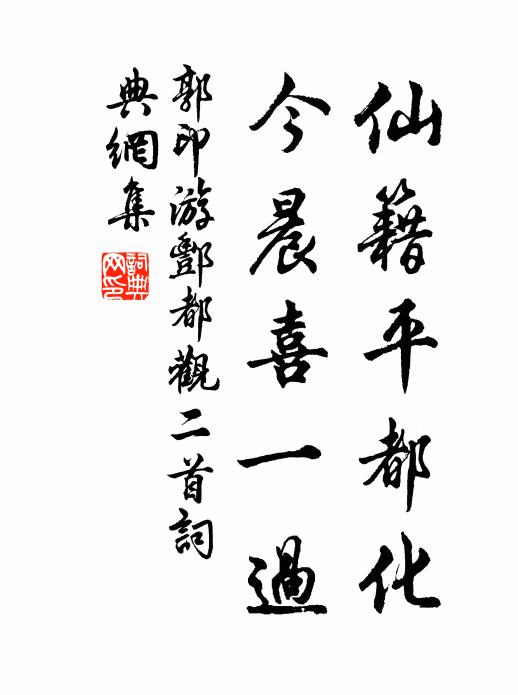 仙籍平都化
今晨喜一過
郭印游酆都觀二首詞
典網集
詞典
网印